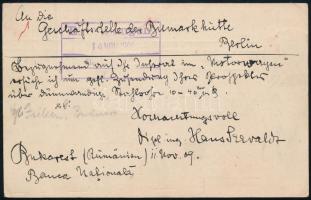 An die
Geschäftsstelle der Bismarkhütte
Berlin
Bezugnehmend auf Ihr Inserat im „Motorwagen"
bitte ich um gefl. Zusendung Ihres Prospektes
über dünnwandige Stahlrohre
Hochachtungsvoll
Dipl. ing. Hans
Bukarest (Rumänien) 11 Nov. 09.
Banca Națională